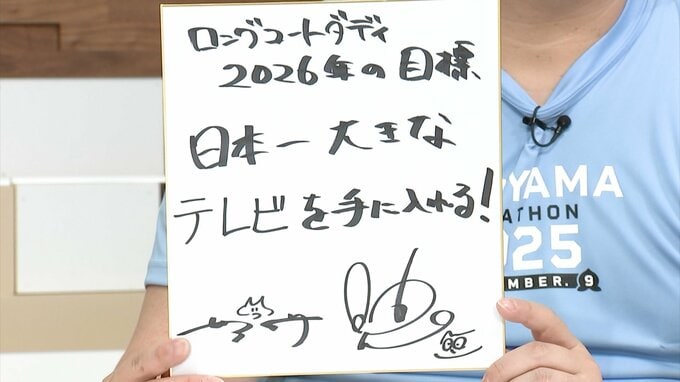 ロングコートダディ
2026年の目標
日本一大きな
テレビを手に入れる!
YAMA
ATHON
025
MBER. 9